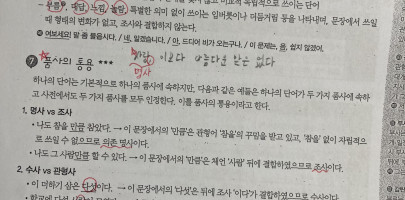 - 부름, 대답, 느낌, 놀람, 특별한 의미 없이 쓰이는 입버릇이나 더듬거림 등을 나타내며, 문장에서 쓰일
때 형태의 변화가 없고, 조사와 결합하지 않는다.
예 여보세요! 말 좀 물읍시다. / 네, 알겠습니다. / 아, 드디어 비가 오는구나. / 이 문제는, 음, 쉽지 않았어.
7 품사의 통용 ***
명사
하나의 단어는 기본적으로 하나의 품사에 속하지만, 다음과 같은 예들은 하나의 단어가 두 가지 품사에 속하
고 사전에서도 두 가지 품사를 모두 인정한다. 이를 품사의 통용이라고 한다.
1. 명사 vs 조사
• 나도 참을 만큼 참았다. → 이 문장에서의 '만큼'은 관형어 '참을'의 꾸밈을 받고 있고, '참을' 없이 자립적으
로 쓰일 수 없으므로 의존 명사이다.
• 나도 그 사람만큼 할 수 있다. → 이 문장에서의 '만큼'은 체언 '사람' 뒤에 결합하였으므로 조사이다.
2. 수사 vs 관형사
• 이 더하기 삼은 다섯이다. → 이 문장에서의 '다섯'은 뒤에 조사 '이다'가 결합하였으므로 수사이다.